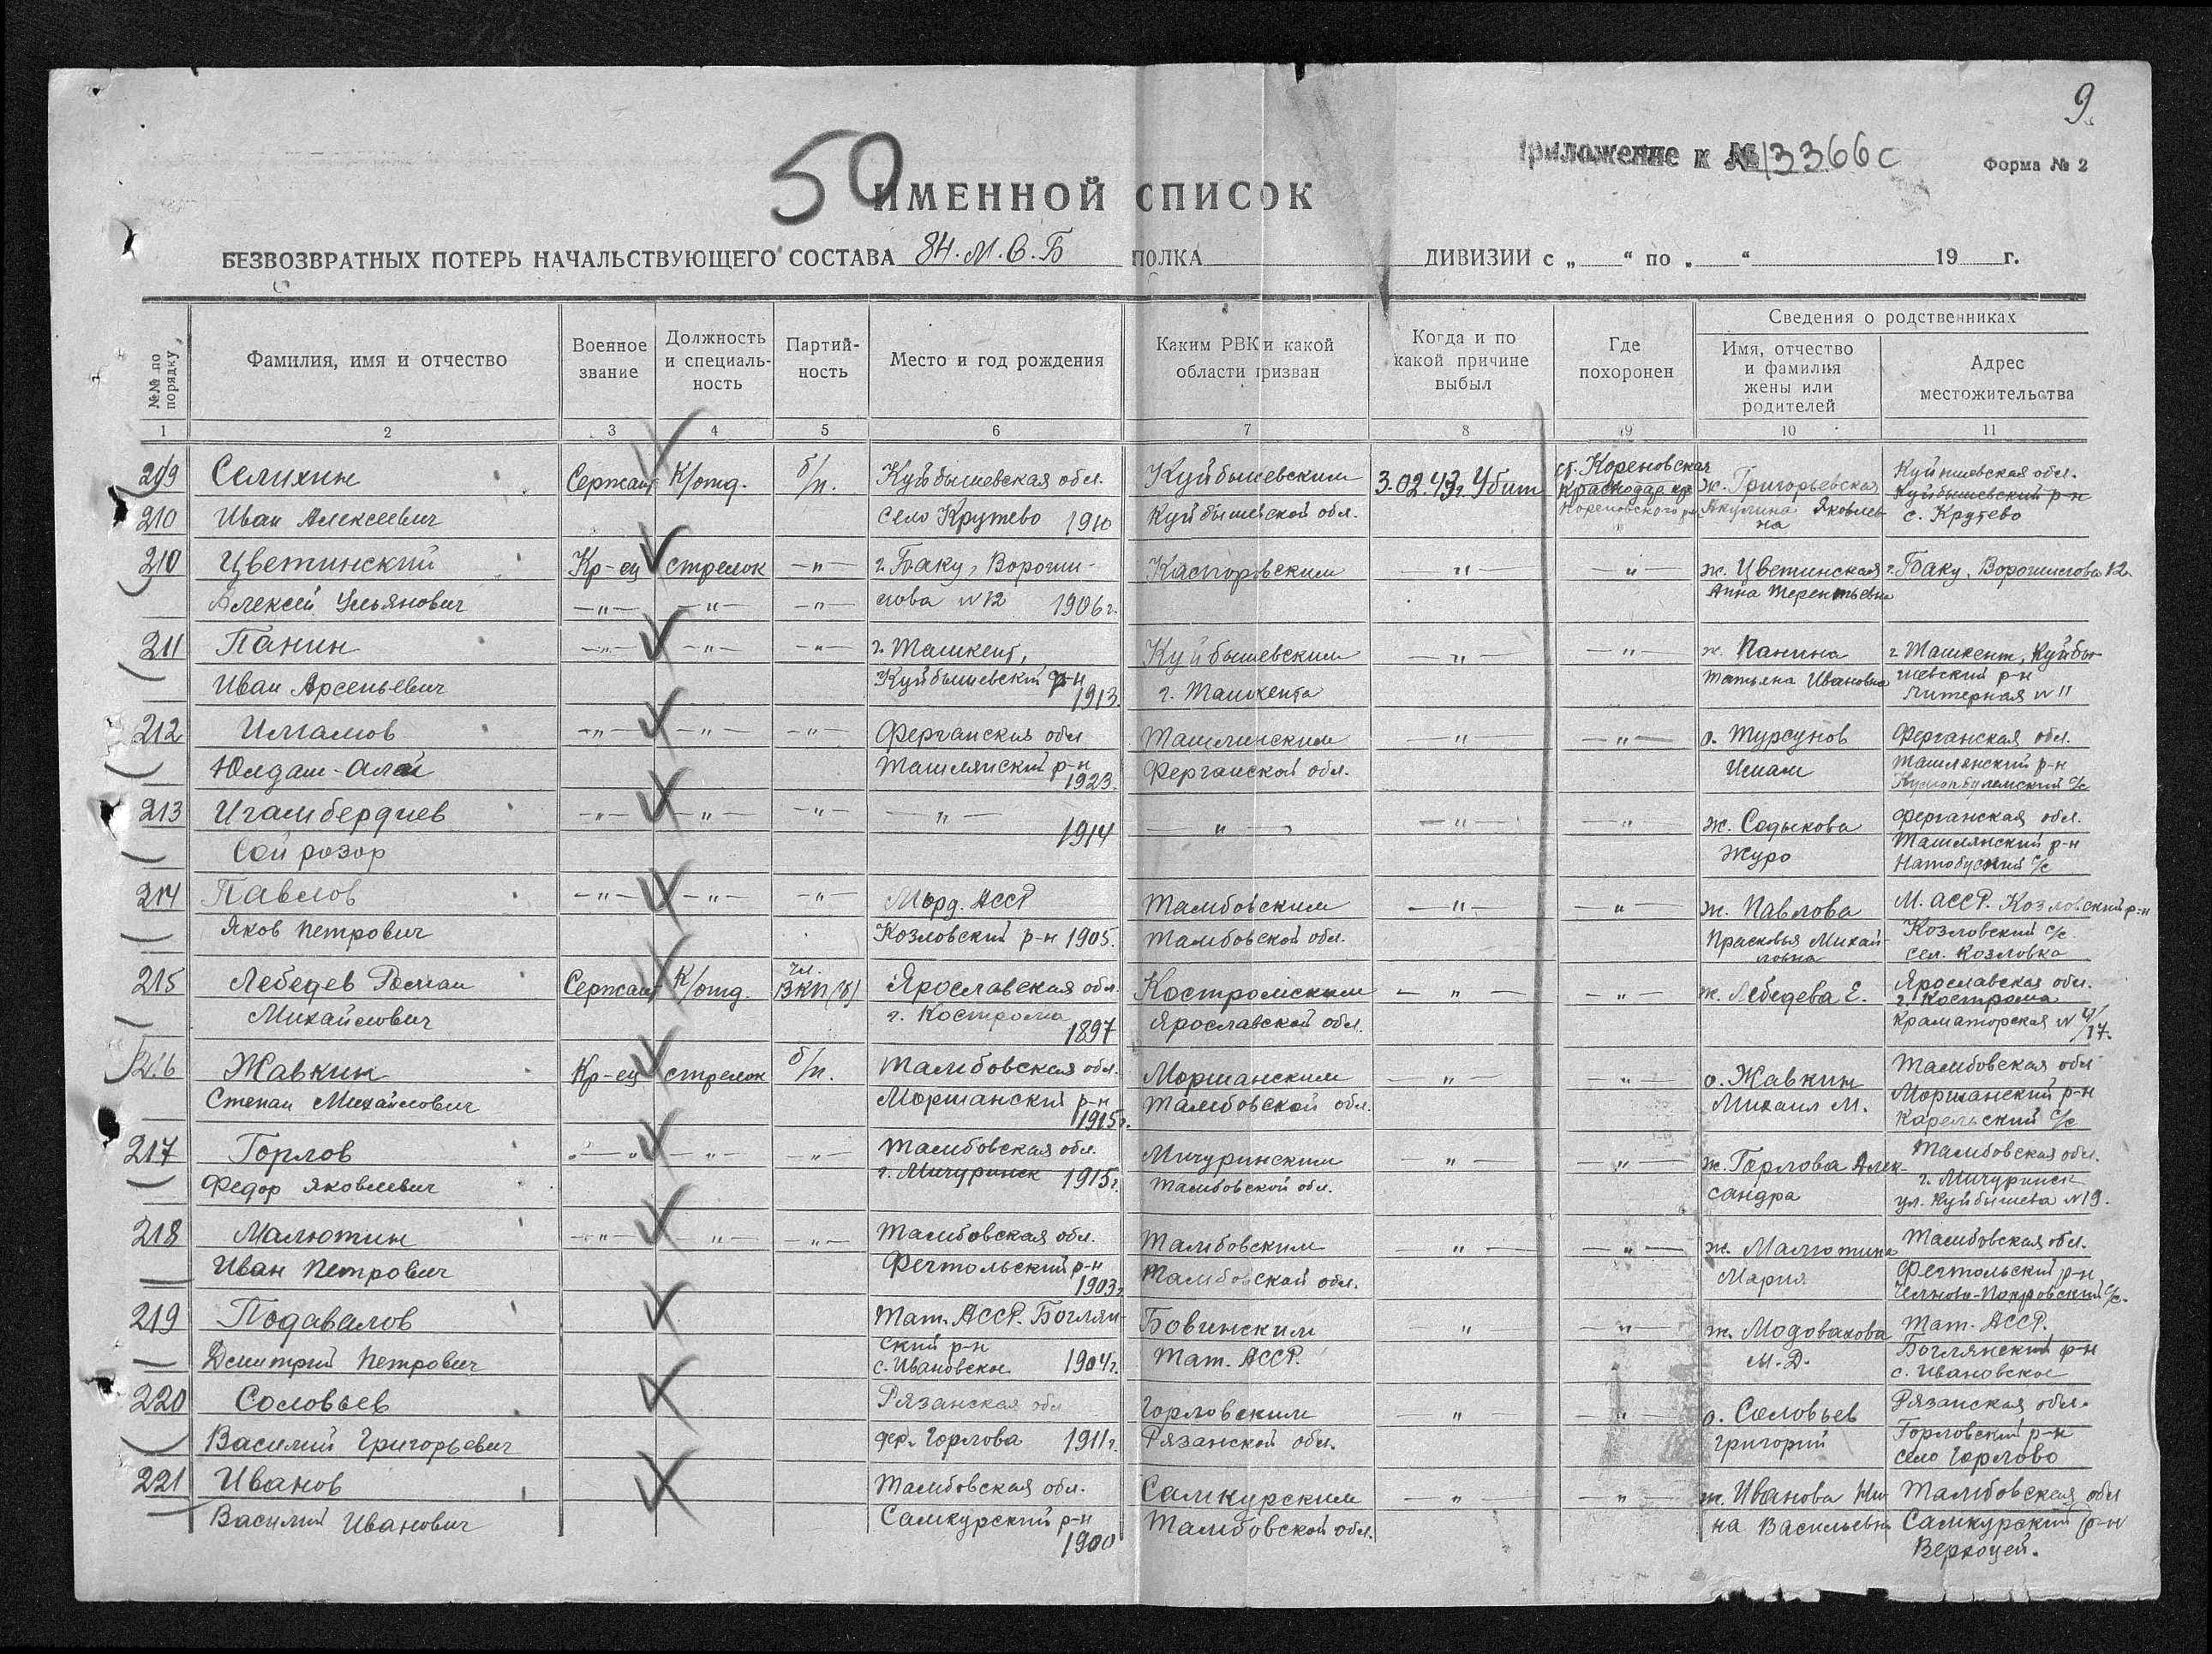 9.
50
Приложение к № 13366с
Форма № 2
ИМЕННОЙ СПИСОК
БЕЗВОЗВРАТНЫХ ПОТЕРЬ НАЧАЛЬСТВУЮЩЕГО СОСТАВА 84. М. С. Б ПОЛКА ДИВИЗИИ с „ “ по „ “ 19 г.
№№ по порядку
Фамилия, имя и отчество
Военное звание
Должность и специальность
Партийность
Место и год рождения
Каким РВК и какой области призван
Когда и по какой причине выбыл
Где похоронен
Сведения о родственниках
Имя, отчество и фамилия жены или родителей
Адрес местожительства
1 2 3 4 5 6 7 8 9 10 11
209 Селихин Сержант К/отд. б/п. Куйбышевская обл. Куйбышевским 3.02.43г. Убит ст. Кореновская ж. Григорьевская Куйбышевская обл.
Краснодар. кр. Куйбышевский р-н
210 Иван Алексеевич село Крутево 1910 Куйбышевской обл. Кореновского р. Акулина Яковлевна с. Крутево
210 Цветинский Кр-ец стрелок —"— г. Баку, Вороши- Каспоровским —"— —"— ж. Цветинская г. Баку, Ворошилова 12.
Алексей Ульянович —"— —"— —"— лова №12 1906г. Анна Терентьевна
211 Панин —"— —"— —"— г. Ташкент, Куйбышевским —"— —"— ж. Панина г. Ташкент, Куйбы-
Иван Арсеньевич Куйбышевский р-н 1913. г. Ташкента Татьяна Ивановна шевский р-н
Питерная №11
212 Имамов —"— —"— —"— Ферганская обл. Ташлинским —"— —"— о. Турсунов Ферганская обл.
Юлдаш-Алей Ташлянский р-н 1923. Ферганской обл. Имам Ташлянский р-н
213 Игамбердиев —"— —"— —"— —"— 1914 —"— —"— —"— ж. Садыкова Ферганская обл.
Сой розор Журо Ташлянский р-н
с/с
214 Павлов —"— —"— —"— Морд. АССР Тамбовским —"— —"— ж. Павлова М. АССР. Козловский р-н
Яков Петрович Козловский р-н 1905. Тамбовской обл. Прасковья Михай- Козловский с/с
ловна сел. Козловка
215 Лебедев Роман Сержант К/отд. чл. ВКП(б) Ярославская обл. Костромским —"— —"— ж. Лебедева Е. Ярославская обл.
Михайлович г. Кострома 1897 Ярославской обл. г. Кострома
Краматорская № 4/17.
216 Жавкин Кр-ец стрелок б/п. Тамбовская обл. Моршанским —"— —"— о. Жавкин Тамбовская обл
Степан Михайлович Моршанский р-н 1915г. Тамбовской обл. Михаил М. Моршанский р-н
Карельский с/с
217 Горлов —"— —"— —"— Тамбовская обл. Мичуринским —"— —"— ж. Горлова Алек- Тамбовская обл.
Федор Яковлевич г. Мичуринск 1915г. Тамбовской обл. сандра г. Мичуринск
ул. Куйбышева №19.
218 Малютин —"— —"— —"— Тамбовская обл. Тамбовским —"— —"— ж. Малютина Тамбовская обл.
Иван Петрович Фечтольский р-н 1903г Тамбовской обл. Мария Фечтольский р-н
Челново-Покровский с/с.
219 Подавалов Тат. АССР. Боглян- Бовинским —"— —"— ж. Модовахова Тат. АССР.
Дмитрий Петрович ский р-н Тат. АССР. М. Д. Боглянский р-н
с. Ивановское 1904г. с. Ивановское
220 Соловьев Рязанская обл Горловским —"— —"— о. Соловьев Рязанская обл.
Василий Григорьевич дер. Горлова 1911г. Рязанской обл. Григорий Горловский р-н
село Горлово
221 Иванов Тамбовская обл. Самкурским —"— —"— ж. Иванова Ни- Тамбовская обл
Василий Иванович Самкурский р-н 1900 Тамбовской обл. на Васильевн Самкурский р-н
Верхоцей.